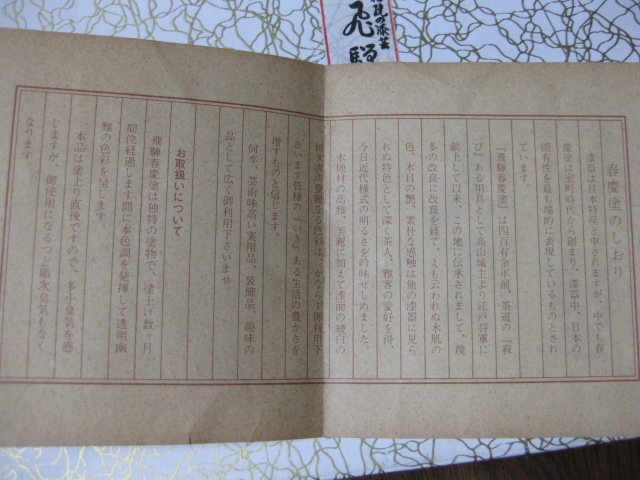 漆芸
飛騨
春慶塗のしおり
漆器は日本特産と申されますが、中でも春
慶塗は室町時代から創まり、漆器中、日本の
固有性を最も端的に表現しているものとされ
ています。
「飛騨春慶塗」は四百有余年前、茶道の「寂
び」ある用具として高山城主より江戸将軍に
献上して以来、この地に伝承されまして、幾
多の改良に改良を経て、えも云われぬ木肌の
色、木目の艶、素朴な感触は他の漆器に見ら
れぬ特色として深く茶人、雅客の愛好を得、
今日近代様式の明るさを吟味せしめました。
木地材の高雅、美麗に加えて漆面の琥珀の
色彩は、かならず御利用下
さいます皆様の「いき」ある生活の豊かさを
増すものと信じます。
何卒、芸術味高い実用品、装飾品、趣味の
品として広く御利用下さいませ。
お取扱いについて
飛騨春慶塗は独特の塗物で、塗上げ数ヶ月
間位経過します間に本色調を発揮して透明幽
雅の色彩を呈します。
本品は塗上り直後ですので、多小臭気を感
じますが、御使用になるうちに順次臭気もなく
なります。